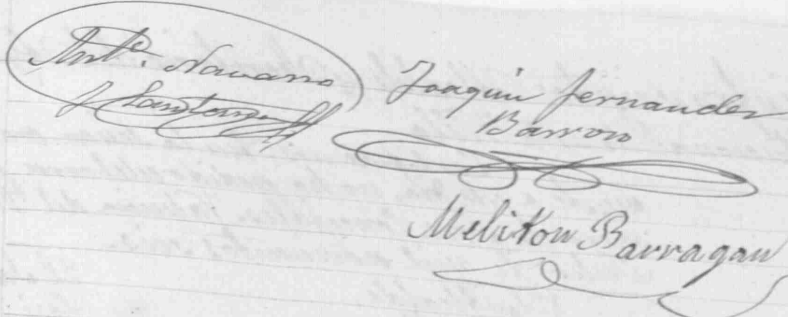 Antº. Navarro
y Santoma
Joaquin Fernandez
Barron
Meliton Barragan